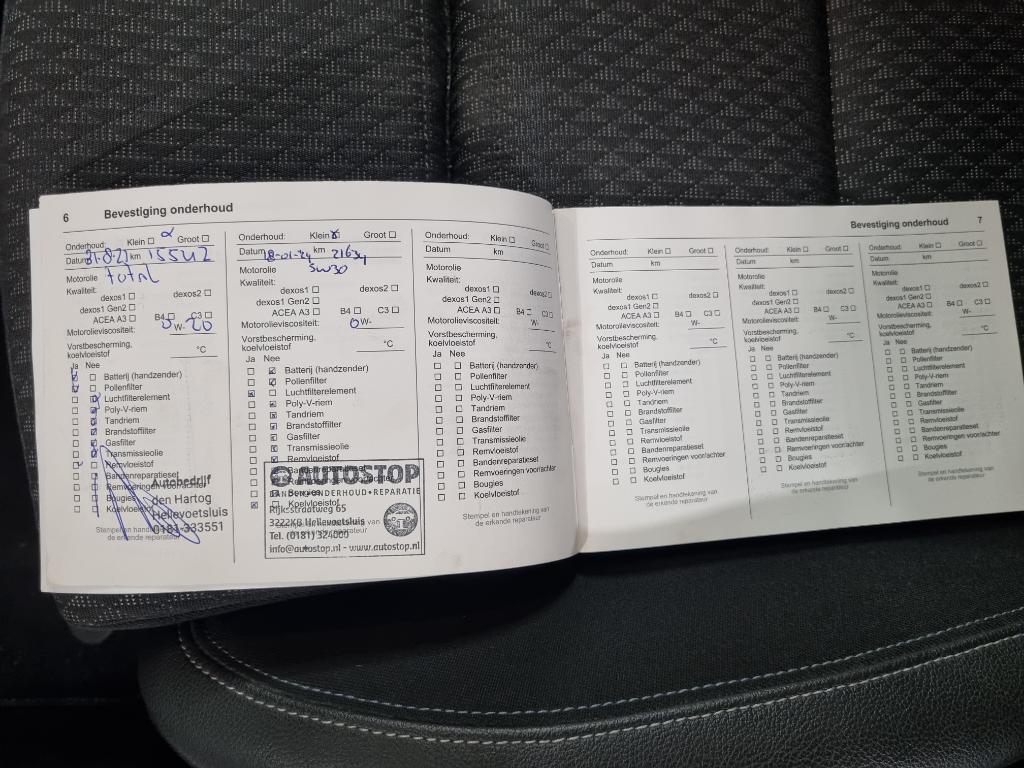 6 Bevestiging onderhoud
Onderhoud: Klein Groot
Datum km 15542
Motorolie total
Kwaliteit:
dexos1 dexos2
dexos1 Gen2
ACEA A3 B4 C3
Motorolieviscositeit: 0 W- 20
Vorstbescherming,
koelvloeistof °C
Ja Nee
Batterij (handzender)
Pollenfilter
Luchtfilterelement
Poly-V-riem
Tandriem
Brandstoffilter
Gasfilter
Transmissieolie
Remvloeistof
Bandenreparatieset
Remvoeringen voor/achter
Bougies
Koelvloeistof
Stempel en handtekening van
de erkende reparateur
Autobedrijf
den Hartog
Hellevoetsluis
0181-333551
Onderhoud: Klein x Groot
Datum 18-01-24 km 21634
Motorolie 5w30
Kwaliteit:
dexos1 dexos2
dexos1 Gen2
ACEA A3 B4 C3
Motorolieviscositeit: 0 W-
Vorstbescherming,
koelvloeistof °C
Ja Nee
Batterij (handzender)
Pollenfilter
Luchtfilterelement
Poly-V-riem
Tandriem
Brandstoffilter
Gasfilter
Transmissieolie
Remvloeistof
Bandenreparatieset
Remvoeringen voor/achter
Bougies
Koelvloeistof
Stempel en handtekening van
de erkende reparateur
AUTOSTOP
ONDERHOUD•REPARATIE
Rijksstraatweg 65
3222KB Hellevoetsluis
Tel. (0181) 324000
info@autostop.nl - www.autostop.nl
Onderhoud: Klein Groot
Datum km
Motorolie
Kwaliteit:
dexos1 dexos2
dexos1 Gen2
ACEA A3 B4 C3
Motorolieviscositeit: W-
Vorstbescherming,
koelvloeistof °C
Ja Nee
Batterij (handzender)
Pollenfilter
Luchtfilterelement
Poly-V-riem
Tandriem
Brandstoffilter
Gasfilter
Transmissieolie
Remvloeistof
Bandenreparatieset
Remvoeringen voor/achter
Bougies
Koelvloeistof
Stempel en handtekening van
de erkende reparateur
Bevestiging onderhoud 7
Onderhoud: Klein Groot
Datum km
Motorolie
Kwaliteit:
dexos1 dexos2
dexos1 Gen2
ACEA A3 B4 C3
Motorolieviscositeit: W-
Vorstbescherming,
koelvloeistof °C
Ja Nee
Batterij (handzender)
Pollenfilter
Luchtfilterelement
Poly-V-riem
Tandriem
Brandstoffilter
Gasfilter
Transmissieolie
Remvloeistof
Bandenreparatieset
Remvoeringen voor/achter
Bougies
Koelvloeistof
Stempel en handtekening van
de erkende reparateur
Onderhoud: Klein Groot
Datum km
Motorolie
Kwaliteit:
dexos1 dexos2
dexos1 Gen2
ACEA A3 B4 C3
Motorolieviscositeit: W-
Vorstbescherming,
koelvloeistof °C
Ja Nee
Batterij (handzender)
Pollenfilter
Luchtfilterelement
Poly-V-riem
Tandriem
Brandstoffilter
Gasfilter
Transmissieolie
Remvloeistof
Bandenreparatieset
Remvoeringen voor/achter
Bougies
Koelvloeistof
Stempel en handtekening van
de erkende reparateur
Onderhoud: Klein Groot
Datum km
Motorolie
Kwaliteit:
dexos1 dexos2
dexos1 Gen2
ACEA A3 B4 C3
Motorolieviscositeit: W-
Vorstbescherming,
koelvloeistof °C
Ja Nee
Batterij (handzender)
Pollenfilter
Luchtfilterelement
Poly-V-riem
Tandriem
Brandstoffilter
Gasfilter
Transmissieolie
Remvloeistof
Bandenreparatieset
Remvoeringen voor/achter
Bougies
Koelvloeistof
Stempel en handtekening van
de erkende reparateur